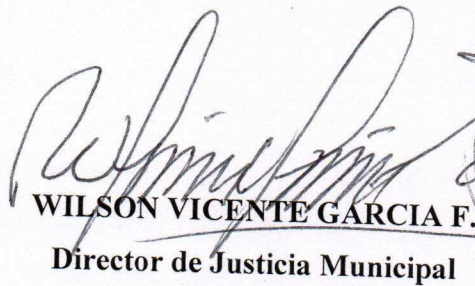 WILSON VICENTE GARCIA F.
Director de Justicia Municipal